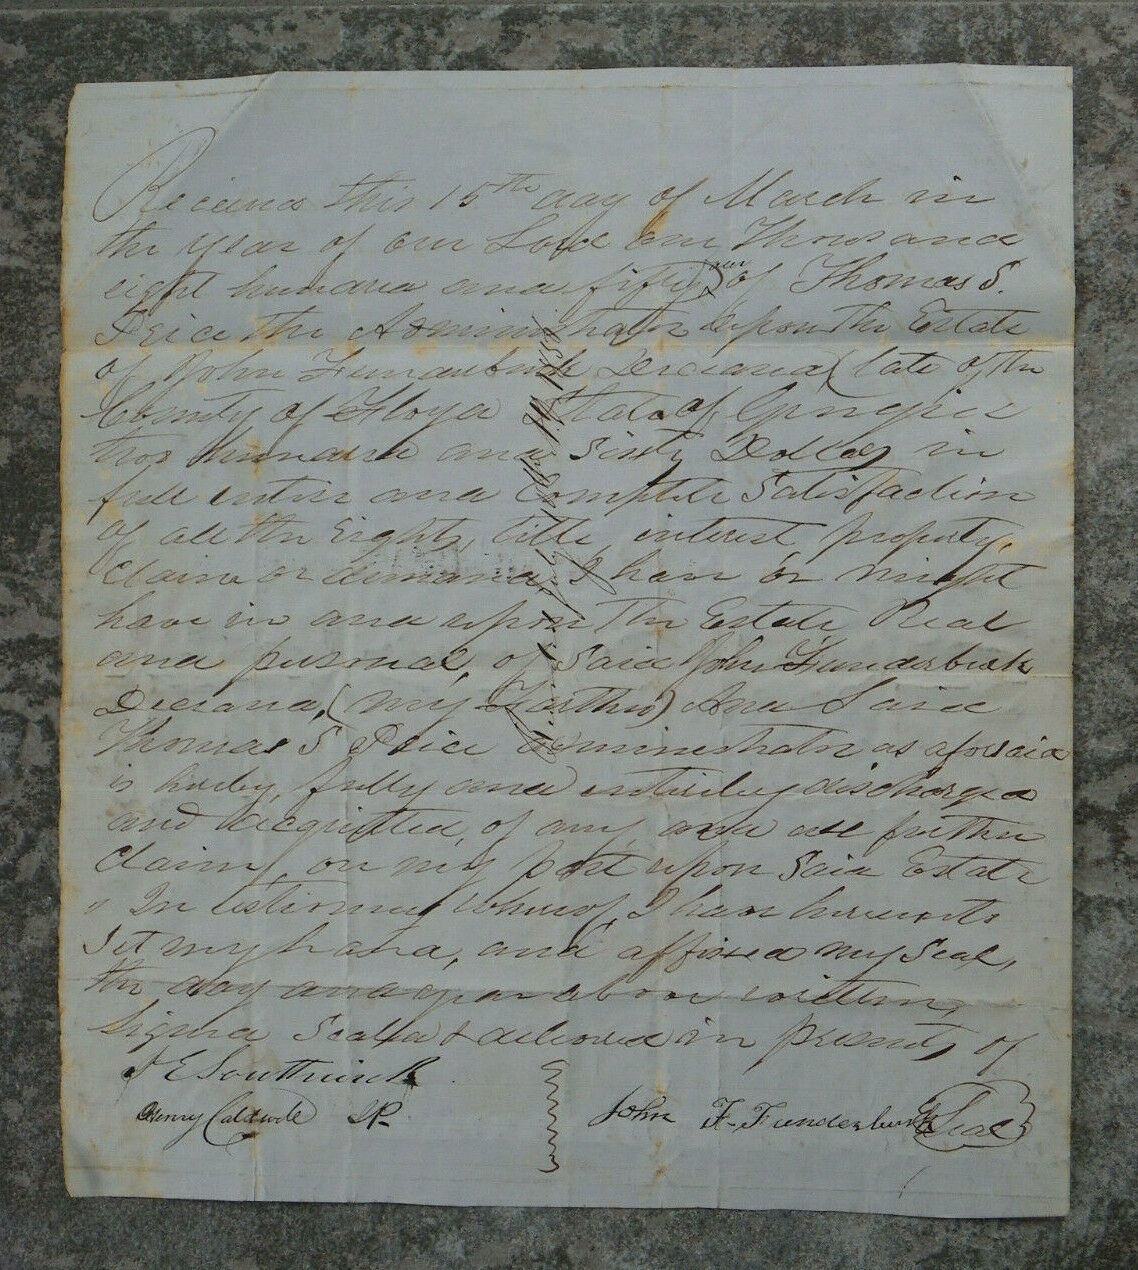 Received this 15th day of March in
the year of our Lord one Thousand
eight hundred and fifty four of Thomas S.
Price the Administrator upon the Estate
of John Funderburk Deceased (late of the
County of Floyd State of Georgia
two hundred and Sixty Dollars in
full entire and complete Satisfaction
of all the Rights, title, interest property,
Claim or demand I have or might
have in and upon the Estate, Real
and personal, of Said John Funderburk
Deceased, (my Father) And Said
Thomas S Price Administrator as aforesaid
is hereby, fully and entirely discharged
and acquitted, of any and all further
Claim, on my part upon Said Estate
In testimony whereof, I have hereunto
Set my hand, and affixed my Seal,
the day and year above written,
Signed Sealed & delivered in presents of
J E Southwick
Henry Caldwell JP
John F. Funderburk Seal